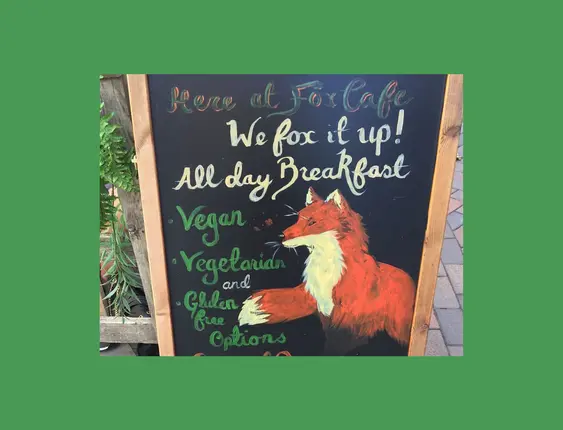 Here at Föx Cafe
We fox it up!
All day Breakfast
Vegan
Vegetarian
and
Gluten
free
Options